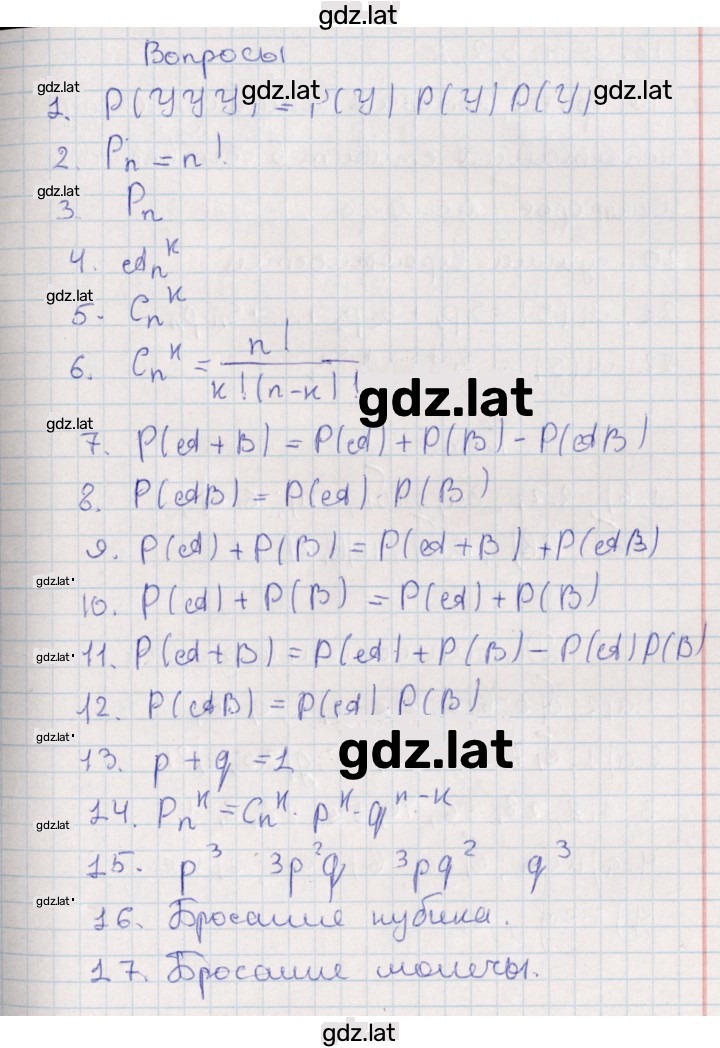 gdz.lat
Вопросы
gdz.lat gdz.lat gdz.lat
1. P(УУУ) = P(У) P(У) P(У)
2. Pₙ = n!
gdz.lat
3 Pₙ
4. Aₙᴷ
gdz.lat
5. Cₙᴷ
6. Cₙᴷ = n! / к!(n-к)!
gdz.lat
gdz.lat
7. P(A + B) = P(A) + P(B) - P(AB)
8. P(AB) = P(A) · P(B)
9. P(A) + P(B) = P(A + B) + P(AB)
gdz.lat
10. P(A) + P(B) = P(A) + P(B)
gdz.lat
11. P(A + B) = P(A) + P(B) - P(A) P(B)
12. P(AB) = P(A) · P(B)
gdz.lat
gdz.lat
13. p + q = 1
14. Pₙᴷ = Cₙᴷ · pᴷ · qⁿ⁻ᴷ
gdz.lat
15. p³ 3p²q 3pq² q³
gdz.lat
16. Бросание кубика.
17. Бросание монеты.
gdz.lat